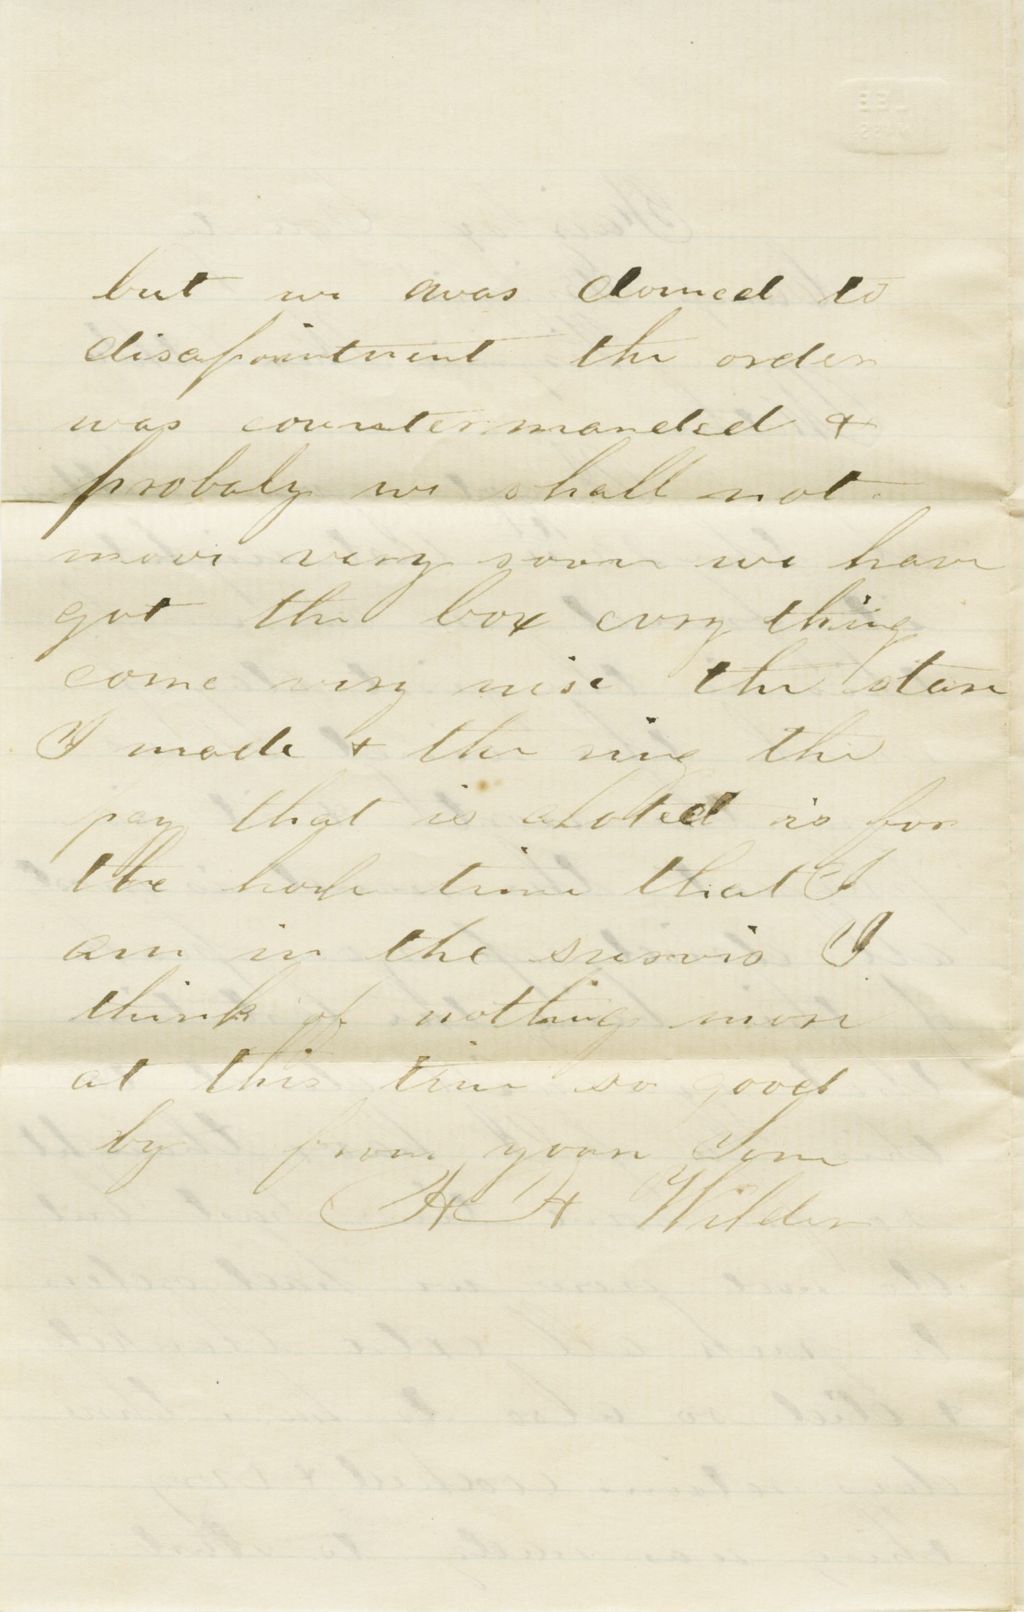 but we was domed to
disapointment the order
was countermanded &
probaly we shall not
move very soon we have
got the box evry thing
come very nise the stare
I made & the ring the
pay that is aloted is for
the hole time that I
am in the survis I
think of nothing more
at this time so good
by from your Son
H H Wilder